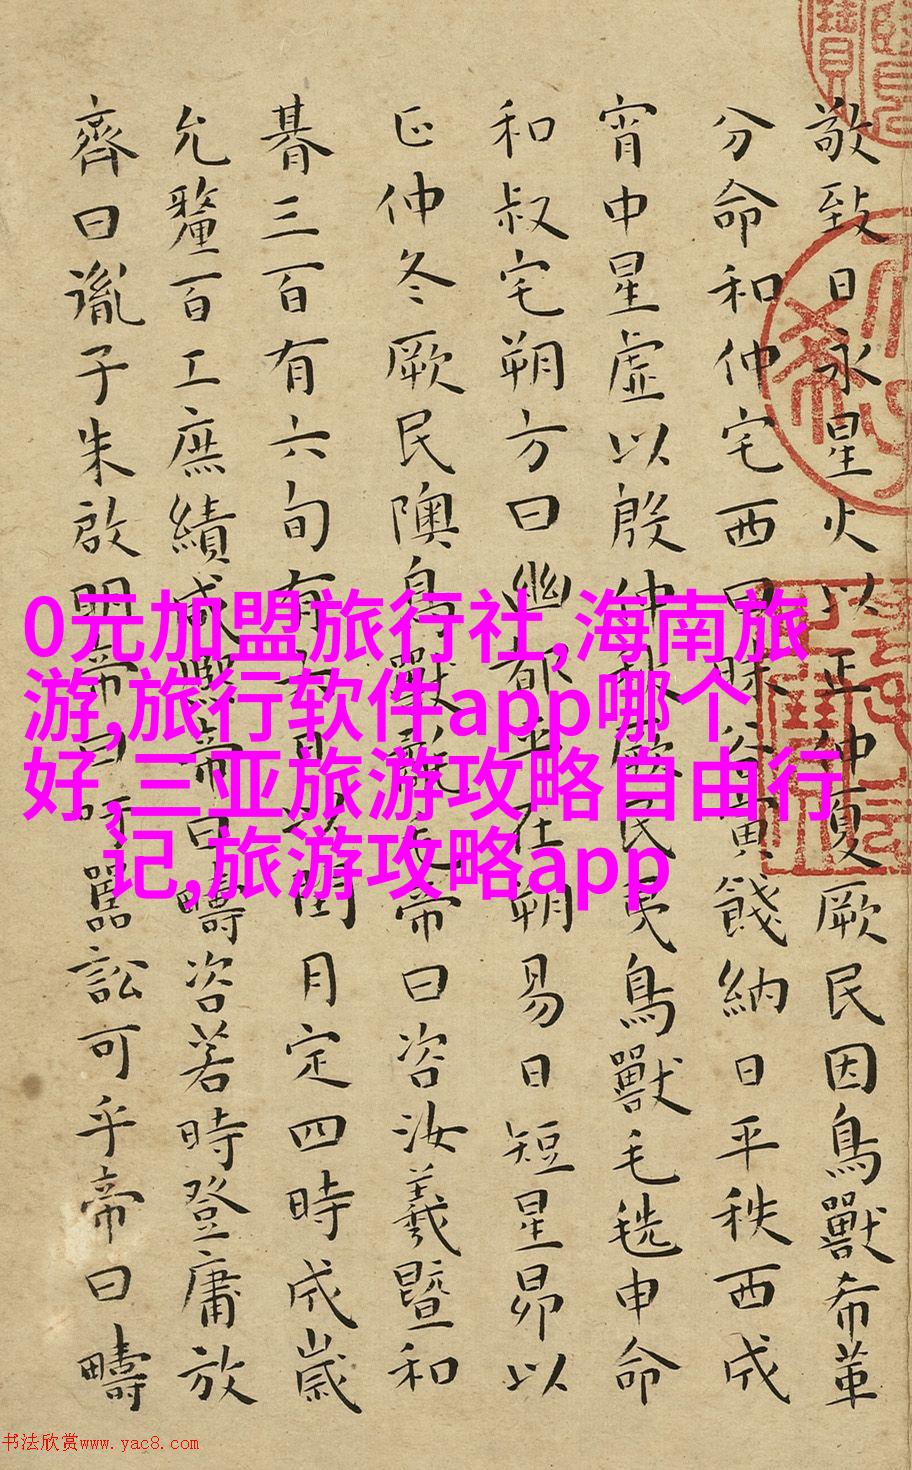 敬致日永星火以正仲夏厥民因鳥獸希革
分命和仲宅西曰昧谷寅餞納日平秩西成
宵中星虛以殷仲秋厥民夷鳥獸毛毨申命
和叔宅朔方曰幽都平在朔易日短星昴以
正仲冬厥民隩鳥獸氄毛帝曰咨汝羲暨和
朞三百有六旬有六日以閏月定四時成歲
允釐百工庶績咸熙帝曰疇咨若時登庸放
齊曰胤子朱啟明帝曰吁嚚訟可乎帝曰疇
0元加盟旅行社,海南旅
游,旅行软件app哪个
好,三亚旅游攻略自由行
记,旅游攻略app
书法欣赏www.yac8.com